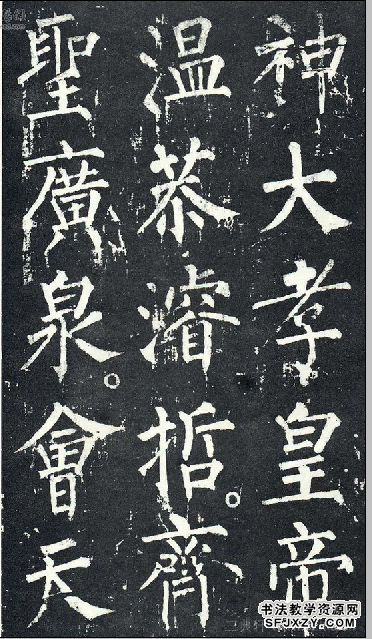 神大孝皇帝
温恭濬哲。齊
聖廣泉。會天
书法教学资源网
SFJXZY.COM